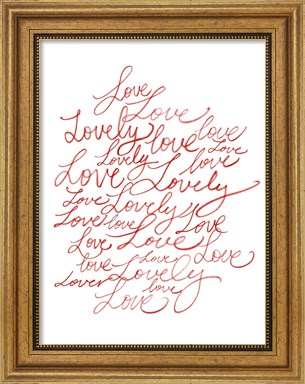 Love
Love
Lovely love love
Lovely Love
Love Lovely love
Love Lovely
Love love Love
Love Love
love Love Love
Lover Lovely
Love love